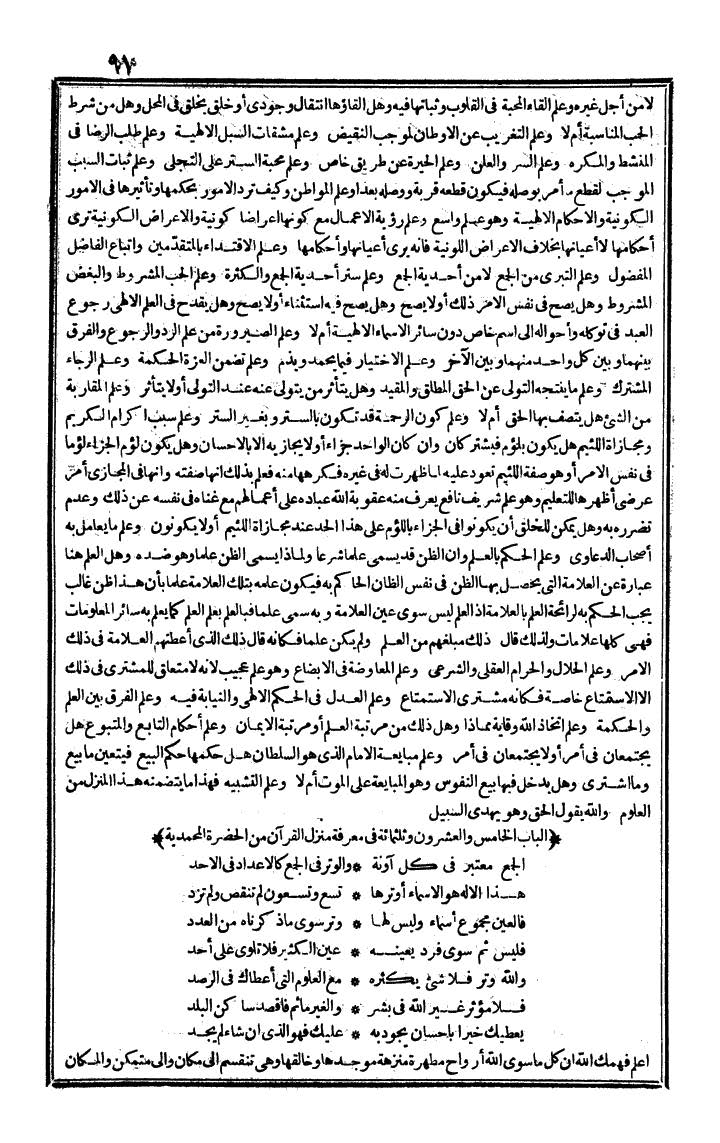 ٩٧
لا من أجل غيره وعلم القاء المحبة فى القلوب وثباتها فيه وهل القاؤها انتقال وجودى أو خلق يخلق فى المحل وهل من شرط
الحب المناسبة أم لا وعلم التغريب عن الاوطان لموجب النقيض وعلم مشقات السبل الالهية وعلم طلب الرضا فى
المنشط والمكره وعلم السر والعلن وعلم الحيرة عن طريق خاص وعلم محبة الستر على التجلى وعلم ثبات السبب
الموجب لقطع مأمر بوصله فيكون قطعه قربة ووصله بعدا وعلم المواطن وكيف ترد الامور بحكمها وتأثيرها فى الامور
الكونية والاحكام الالهية وهو علم واسع وعلم رؤية الاعمال مع كونها اعراضا كونية والاعراض الكونية ترى
أحكامها لا أعيانها بخلاف الاعراض اللونية فانه يرى أعيانها وأحكامها وعلم الاقتداء بالمتقدمين واتباع الفاضل
المفضول وعلم التبرى من الجع لا من أحدية الجع وعلم ستر أحدية الجع والكثرة وعلم الحب المشروط والبغض
المشروط وهل يصح فى نفس الامر ذلك أولا يصح وهل يصح فيه استثناء أولا يصح وهل يقدح فى العلم الالهى رجوع
العبد فى توكله وأحواله الى اسم خاص دون سائر الاسماء الالهية أم لا وعلم الصيرورة من علم الرد والرجوع والفرق
بينهما وبين كل واحد منهما وبين الآخر وعلم الاختيار فيما يحمد ويذم وعلم تضمن العزة الحكمة وعلم الرجاء
المشترك وعلم ما ينتجه التولى عن الحق المطلق والمقيد وهل يتأثر من يتولى عنه عند التولى أولا يتأثر وعلم المقاربة
من الشئ هل يتصف بها الحق أم لا وعلم كون الرحمة قد تكون بالستر وبغير الستر وعلم سبب اكرام الكريم
ومجازاة اللئيم هل يكون بلؤم فيشتركان وان كان الواحد جزاء أولا يجازيه الا بالاحسان وهل يكون لؤم الجزاء لؤما
فى نفس الامر أو هو صفة اللئيم تعود عليه لما ظهرت له فى غيره فكرهها منه فعلم بذلك انها صفته وانها فى المجازى أمر
عرضى أظهرها للتعليم وهو علم شريف نافع يعرف منه عقوبة الله عباده على أعمالهم مع غناه فى نفسه عن ذلك وعدم
تضرره به وهل يمكن للخلق أن يكونوا فى الجزاء باللؤم على هذا الحد عند مجازاة اللئيم أولا يكونون وعلم ما يعامل به
أصحاب الدعاوى وعلم الحكم بالعلم وان الظن قد يسمى علما شرعا ولماذا يسمى الظن علما وهو ضده وهل العلم هنا
عبارة عن العلامة التى يحصل بها الظن فى نفس الظان الحاكم به فيكون علمه بتلك العلامة علما بأن هذا ظن غالب
يجب الحكم به لرائحة العلم بالعلامة اذ العلم ليس سوى عين العلامة وبه سمى علما فبالعلم يعلم العلم كما يعلم به سائر المعلومات
فهى كلها علامات ولذلك قال ذلك مبلغهم من العلم ولم يكن علما فكانه قال ذلك الذى أعطتهم العلامة فى ذلك
الامر وعلم الحلال والحرام العقلى والشرعى وعلم المعاوضة فى الابضاع وهو علم عجيب لانه لا متعلق للمشترى فى ذلك
الا الاستمتاع خاصة فكانه مشترى الاستمتاع وعلم العدل فى الحكم الالهى والنيابة فيه وعلم الفرق بين العلم
والحكمة وعلم اتخاذ الله وقاية مماذا وهل ذلك من مرتبة العلم أو مرتبة الايمان وعلم أحكام التابع والمتبوع هل
يجتمعان فى أمر أولا يجتمعان فى أمر وعلم مبايعة الامام الذى هو السلطان هل حكمها حكم البيع فيتعين ما بيع
وما اشترى وهل يدخل فيها بيع النفوس وهو المبايعة على الموت أم لا وعلم التشبيه فهذا ما يتضمنه هذا المنزل من
العلوم والله يقول الحق وهو يهدى السبيل
﴿الباب الخامس والعشرون وثلثمائة فى معرفة منزل القرآن من الحضرة المحمدية﴾
الجع معتبر فى كل آونة * والوتر فى الجع كالاعداد فى الاحد
هذا الاله هو الاسماء أوترها * تسع وتسعون لم تنقص ولم تزد
فالعين مجموع أسماء وليس لها * وتر سوى ماذكرناه من العدد
فليس ثم سوى فرد يعينه * عين الكثير فلا تلوى على أحد
والله وتر فلا شئ يكثره * مع العلوم التى أعطاك فى الرصد
فلا مؤثر غير الله فى بشر * والغير ماثم فاقصد ساكن البلد
يعطيك خيرا باحسان يجود به * عليك فهو الذى ان شاء لم يجد
اعلم فهمك الله ان كل ما سوى الله أرواح مطهرة منزهة موجدها وخالقها وهى تنقسم الى مكان والى متمكن والمكان